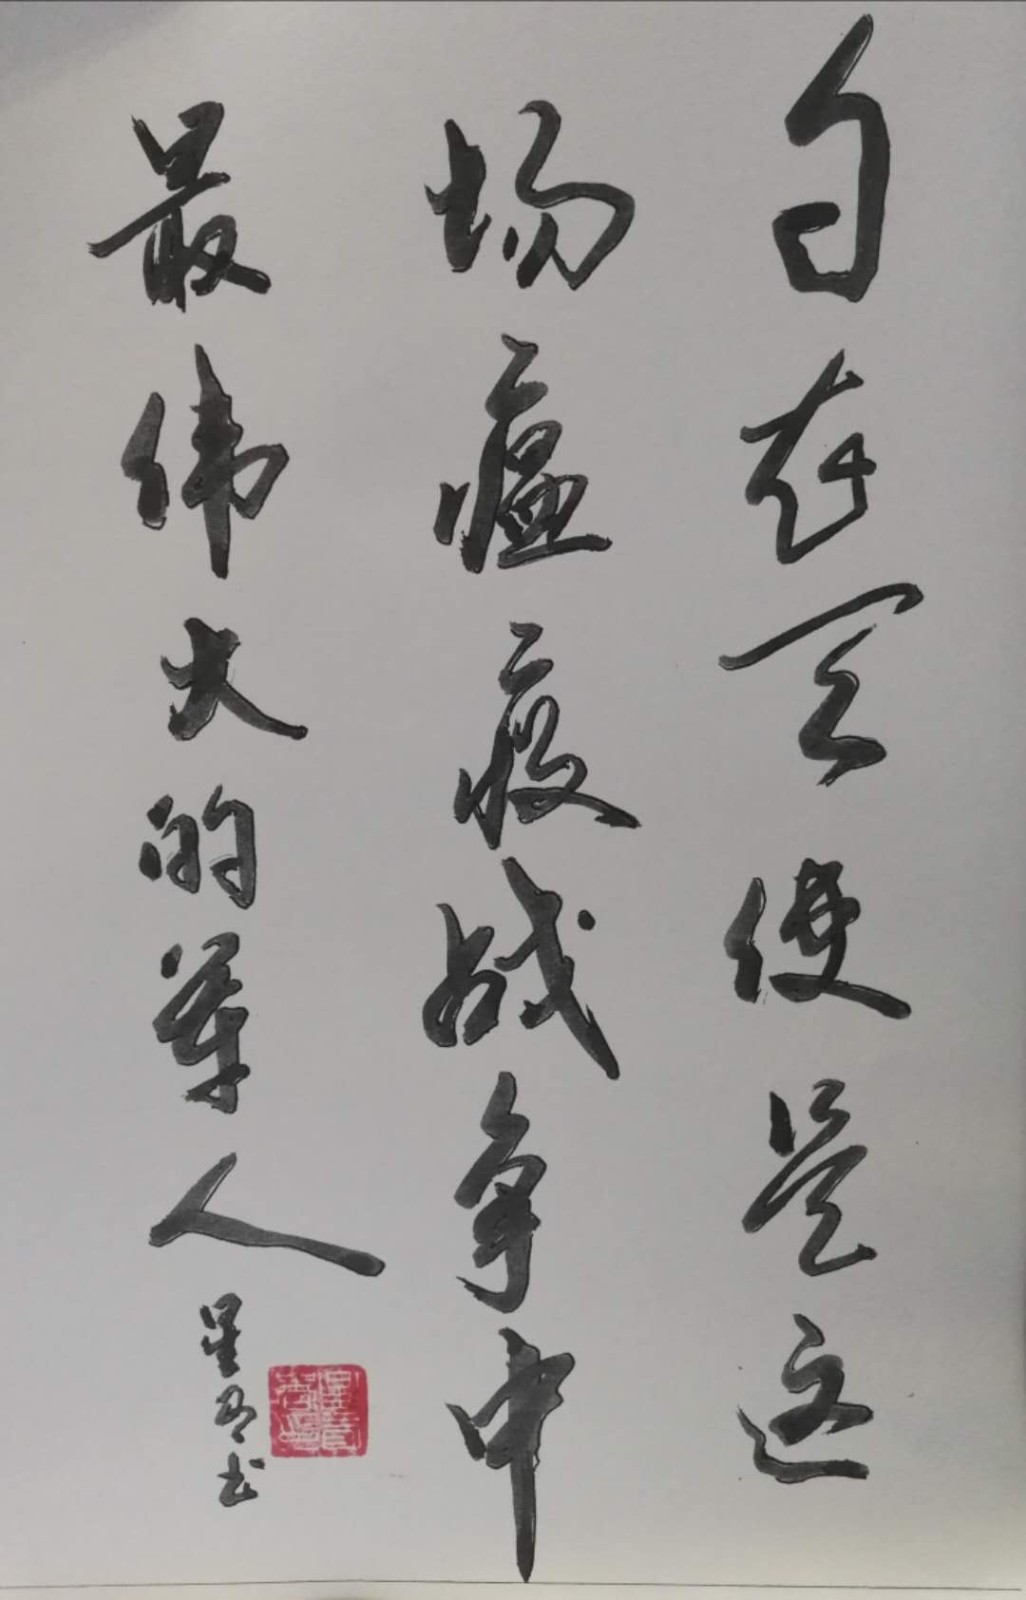 白衣天使是这
场瘟疫战争中
最伟大的军人
星 书